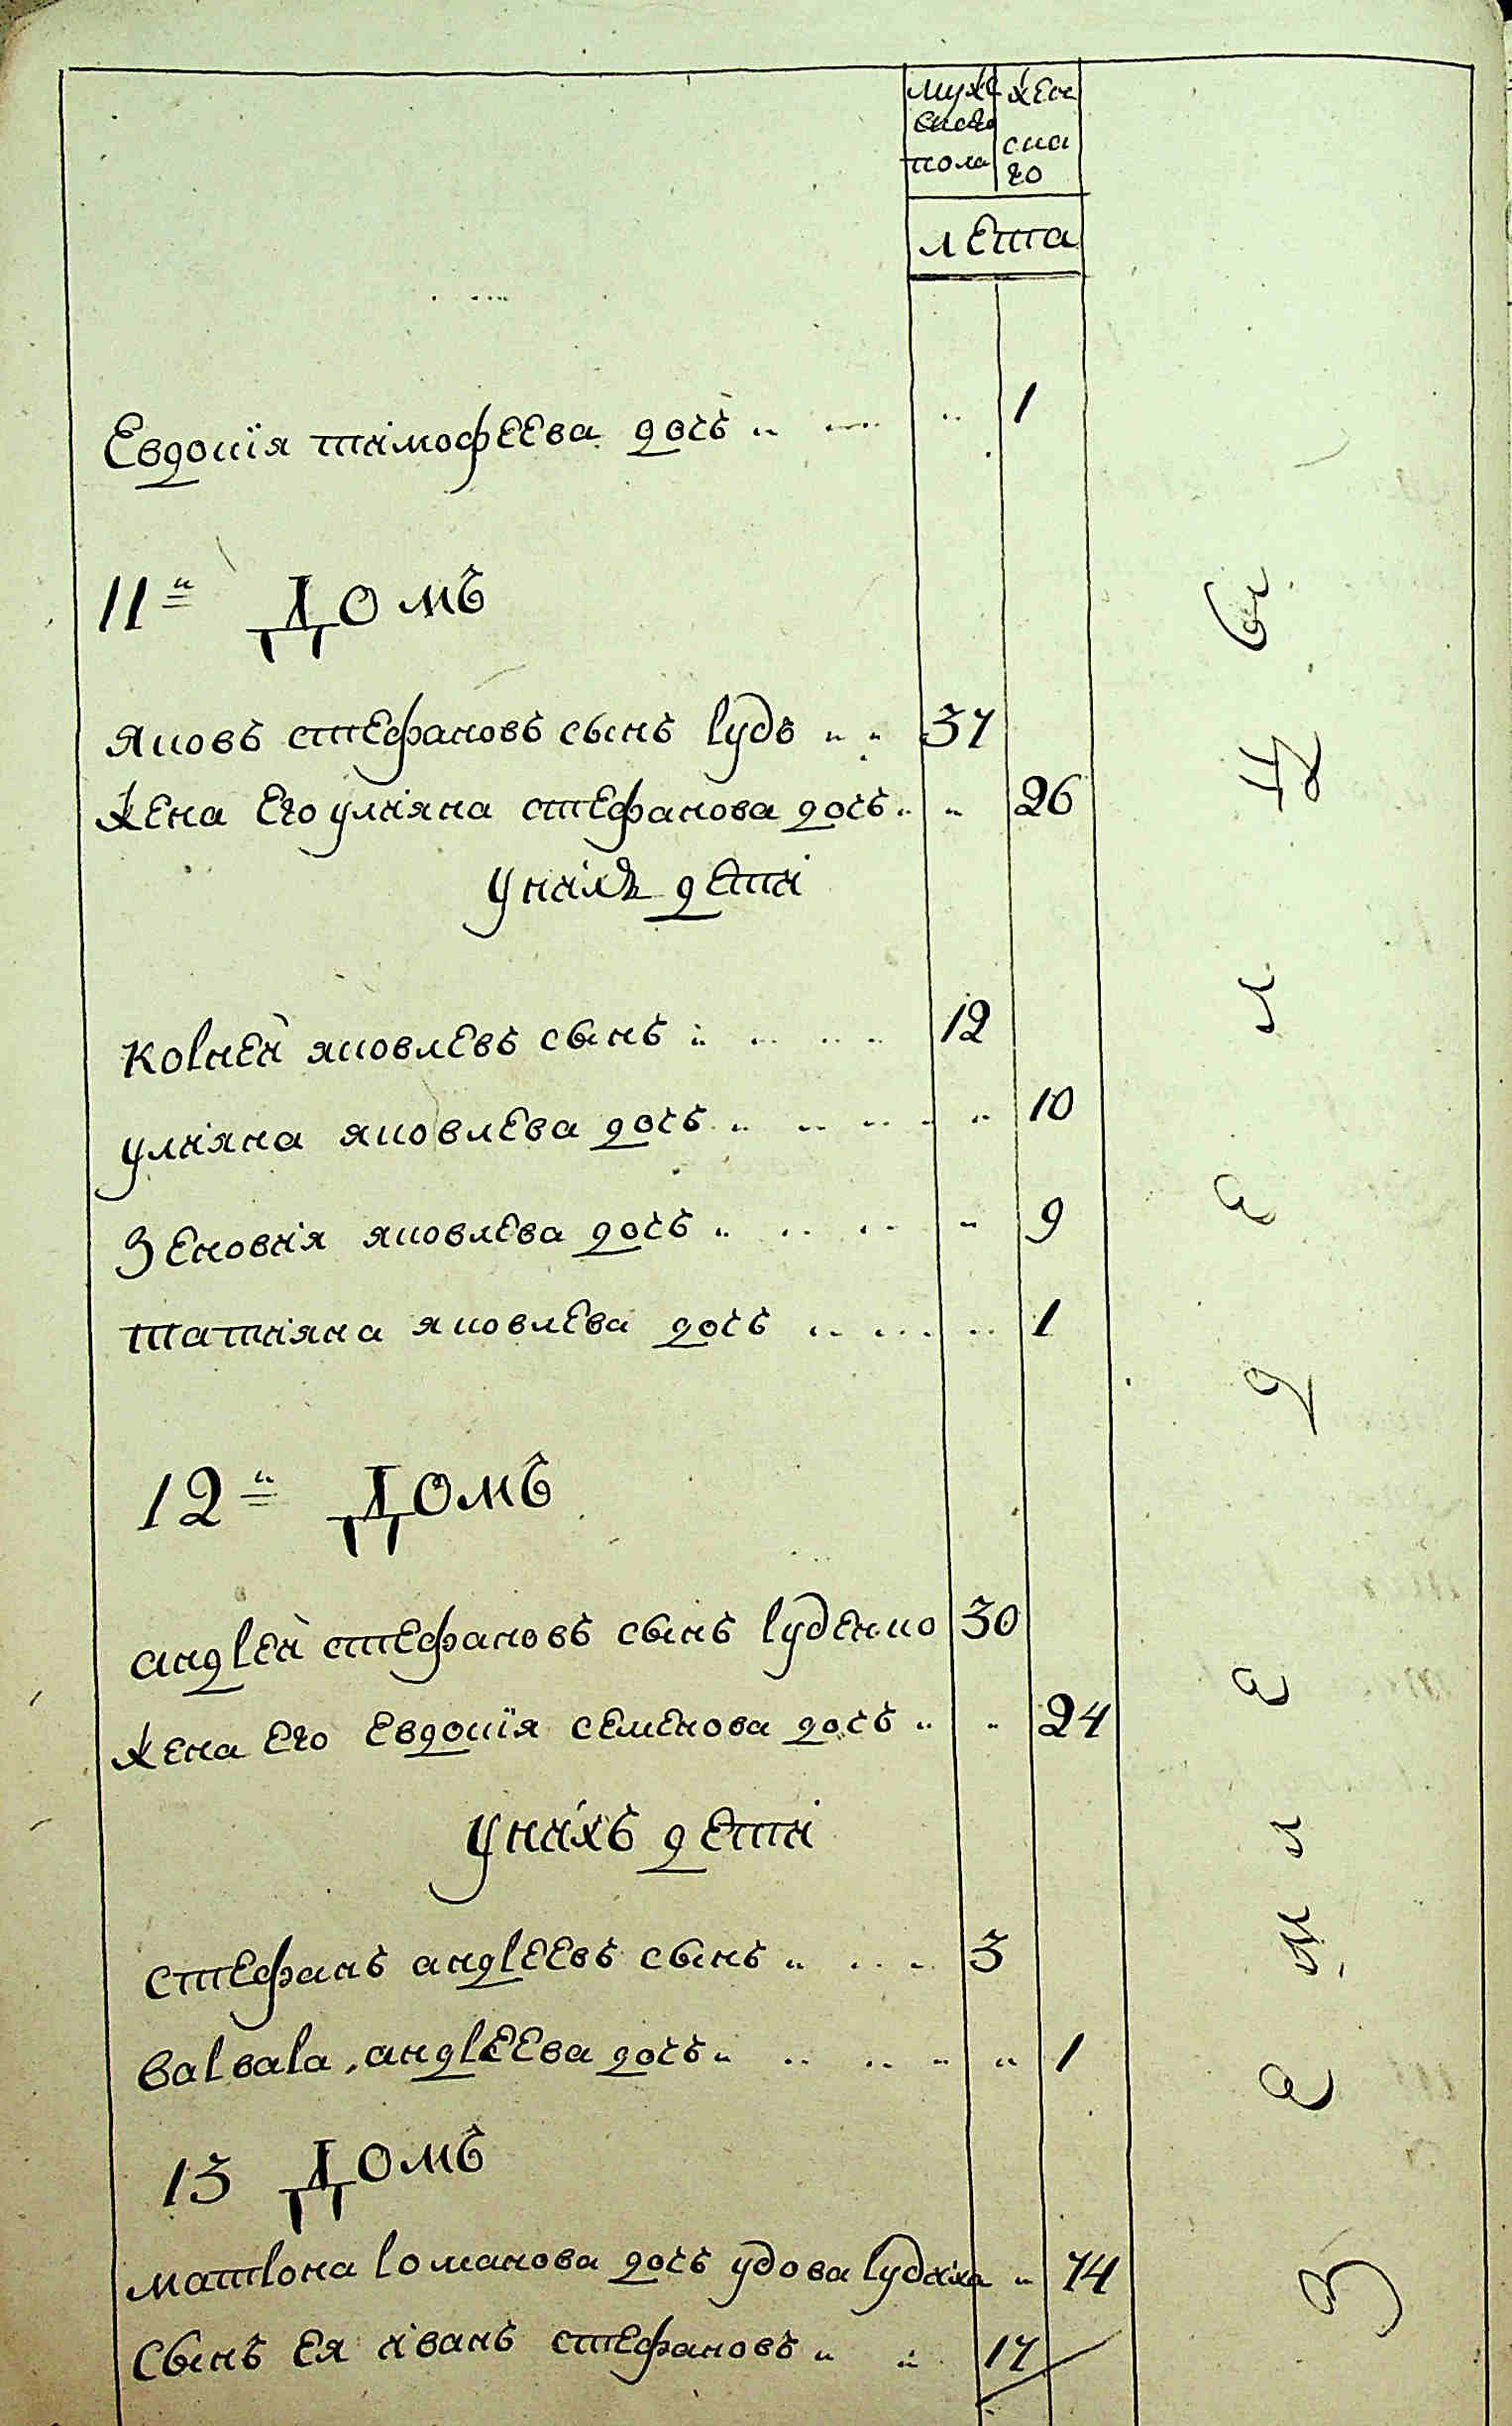 мужескаго пола
женскаго
лета
Евдокїя тимофеева дочь 1
11й Домъ
Яковъ стефановъ сынъ рудь 37
Жена Его улияна стефанова дочь 26
У нихъ дети
Корней яковлевъ сынъ 12
улияна яковлева дочь 10
Зеновия яковлева дочь 9
татияна яковлева дочь 1
12й Домъ
андрей стефановъ сынъ руденко 30
Жена Его Евдокїя семенова дочь 24
У нихъ дети
стефанъ андреевъ сынъ 3
варвара андреева дочь 1
13 Домъ
матрона романова дочь удова рудиха 74
Сынъ Ея иванъ стефановъ 17
Земледелцы